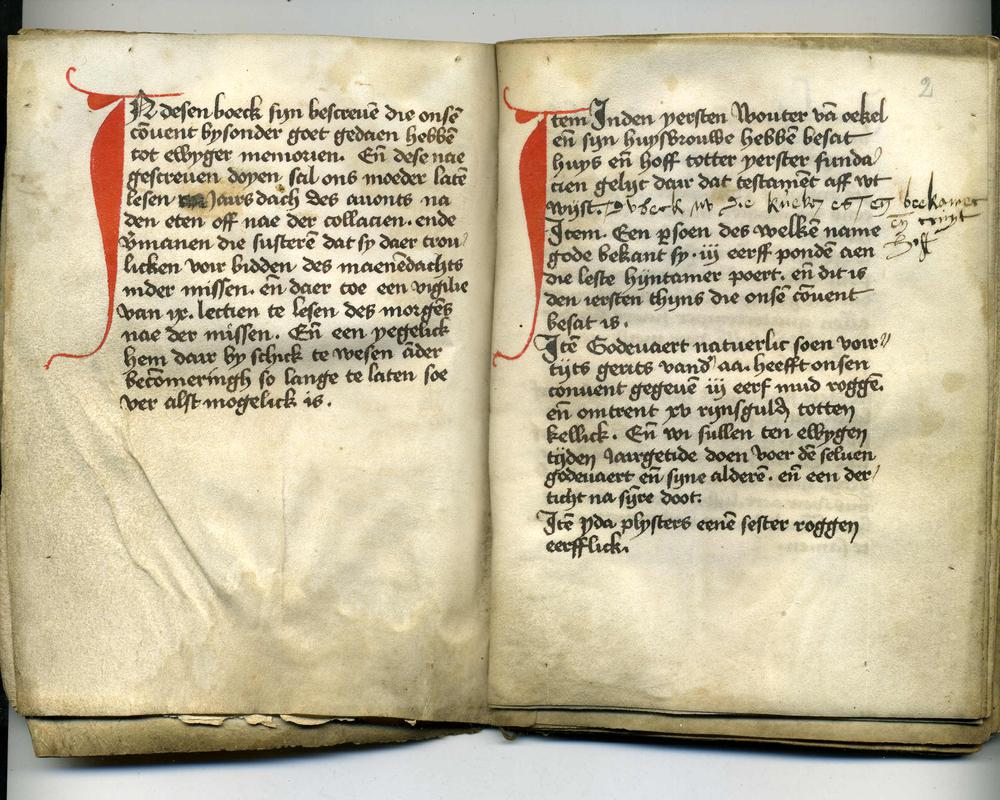 IN desen boeck sijn bescreuē die onsē
cōuent bysonder goet gedaen hebbē
tot ewyger memorien. En̄ dese nae
gescreuen doyen scal ons moeder latē
lesen Jaarsdach des auonts na
den eten off nae der collacien. ende
v̄manen die susterē dat sy daer trou
licken voir bidden des maenēdachts
inder missen. en̄ daer toe een vigilie
van ix. lectien te lesen des morgēs
nae der missen. En̄ een yegelick
hem daar by schick te wesen āder
becōmeringh so lange te laten soe
ver alst mogelick is.
2
Item Inden yersten Wouter vā oekel
en̄ sijn huysvrouwe hebbē besat
huys en̄ hoff totter yerster funda
cien gelijc daar dat testamēt aff wt
wijst.
Item. Een p̄soen des welkē name
gode bekant sy. iij eerff pondē aen
die leste hijntamer poert. en̄ dit is
den iersten thijns die onsē cōuent
besat is.
Itē Godeuaert natuerlic soen voir
tijts gerits vand' aa. heefft onsen
conuent gegeuē iij eerf mud roggē.
en̄ omtrent xv rijnsguld' totten
kellick. En̄ wi sullen ten ewygen
tijden Jaargetide doen voer dē seluen
godeuaert en̄ syne alderē. en̄ een der
ticht na sijre doot.
Itē yda plysters eenē sester roggen
eerfflick.